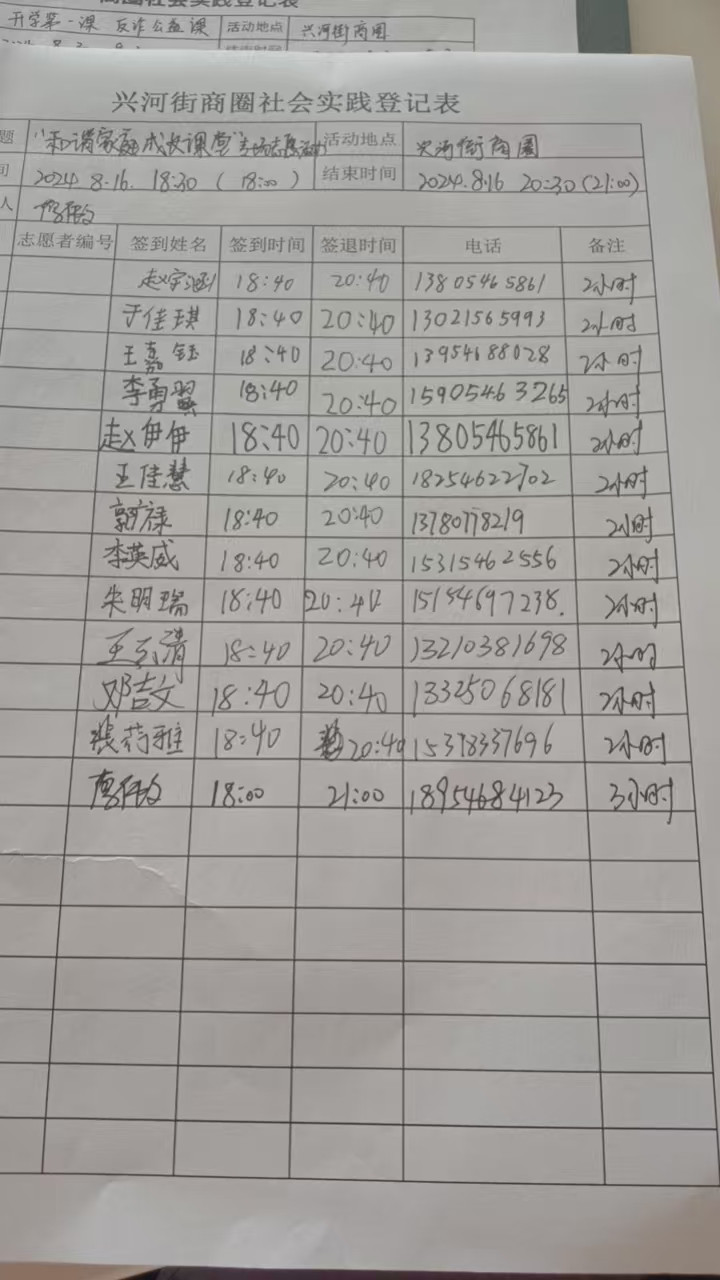 开学第一课 反诈公益课 活动地点 兴河街商圈
兴河街商圈社会实践登记表
题 "和谐家庭成长课堂" 活动地点 兴河街商圈
间 2024 8.16. 18:30 (18:00) 结束时间 2024.8.16 20:30(21:00)
人
志愿者编号 签到姓名 签到时间 签退时间 电话 备注
赵宇涵 18:40 20:40 13805465861 2小时
于佳琪 18:40 20:40 13021565993 2小时
王嘉钰 18:40 20:40 13954688028 2小时
李勇翼 18:40 20:40 15905463265 2小时
赵伊伊 18:40 20:40 13805465861 2小时
王佳慧 18:40 20:40 18254622702 2小时
郭禄 18:40 20:40 13780778219 2小时
李英威 18:40 20:40 15315462556 2小时
朱明瑞 18:40 20:40 15154697238. 2小时
王云清 18:40 20:40 13210381698 2小时
邓吉文 18:40 20:40 13325068181 2小时
裴荷雅 18:40 20:40 15378337696 2小时
18:00 21:00 18954684123 3小时